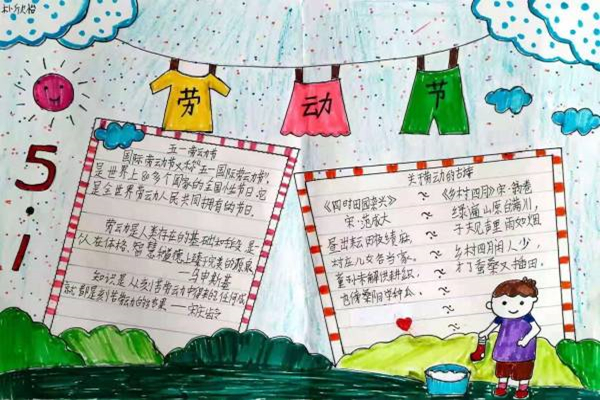 劳 动 节
5·1
五一劳动节
国际劳动节又称"五一国际劳动节"
是世界上80多个国家的全国性节日。它
是全世界劳动人民共同拥有的节日。
劳动是人类存在的基础和手段,是一
个人在体格、智慧和道德上臻于完美的源泉
——乌申斯基
知识是从刻苦劳动中得来的,任何成
就都是刻苦劳动的结果。——宋庆龄
关于劳动的古诗
《四时田园杂兴》
宋·范成大
昼出耘田夜绩麻,
村庄儿女各当家。
童孙未解供耕织,
也傍桑阴学种瓜。
《乡村四月》宋·翁卷
绿遍山原白满川,
子规声里雨如烟
乡村四月闲人少,
才了蚕桑又插田。